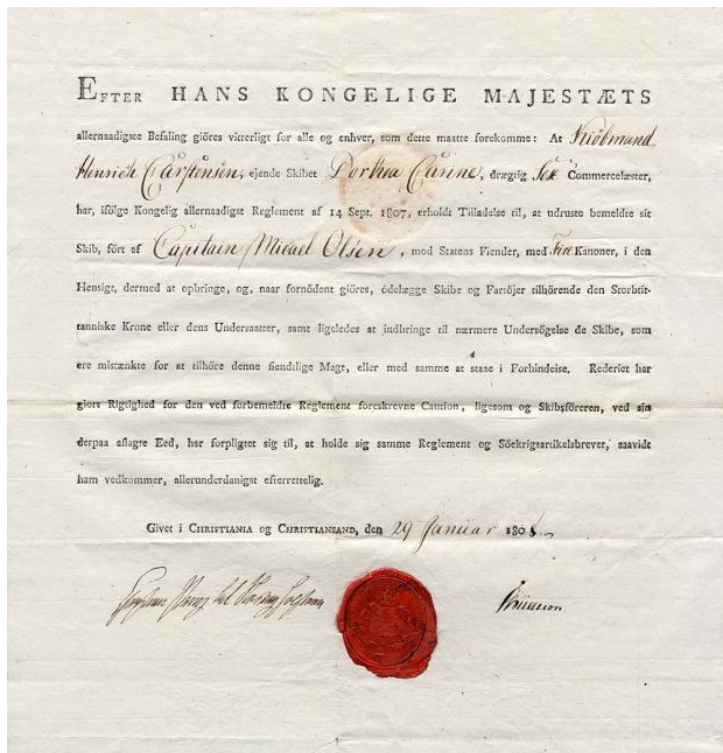 EFTER HANS KONGELIGE MAJESTÆTS
allernaadigste Befaling giöres vitterligt for alle og enhver, som dette maatte forekomme: At Kiöbmand
Henrich Carstensen, ejende Skibet Dorthea Carine, drægtig Sex Commercelæster,
har, ifölge Kongelig allernaadigst Reglement af 14 Sept. 1807, erholdt Tilladelse til, at udruste bemeldte sit
Skib, fört af Capitain Micael Olsen, mod Statens Fiender, med Fire Kanoner, i den
Hensigt, dermed at opbringe, og, naar fornödent giöres, ödelægge Skibe og Fartöjer tilhörende den Storbrit-
tanniske Krone eller dens Undersaatter, samt ligeledes at indbringe til nærmere Undersögelse de Skibe, som
ere mistænkte for at tilhöre denne fiendtlige Magt, eller med samme at staae i Forbindelse. Rederiet har
giort Rigtighed for den ved forbemeldte Reglement foreskrevne Caution, ligesom og Skibsföreren, ved sin
derpaa aflagte Eed, har forpligtet sig til, at holde sig samme Reglement og Söekrigsartikelsbrevet, saavidt
ham vedkommer, allerunderdanigst efterrettelig.
Givet i CHRISTIANIA og CHRISTIANSAND, den 29 Januar 1808.